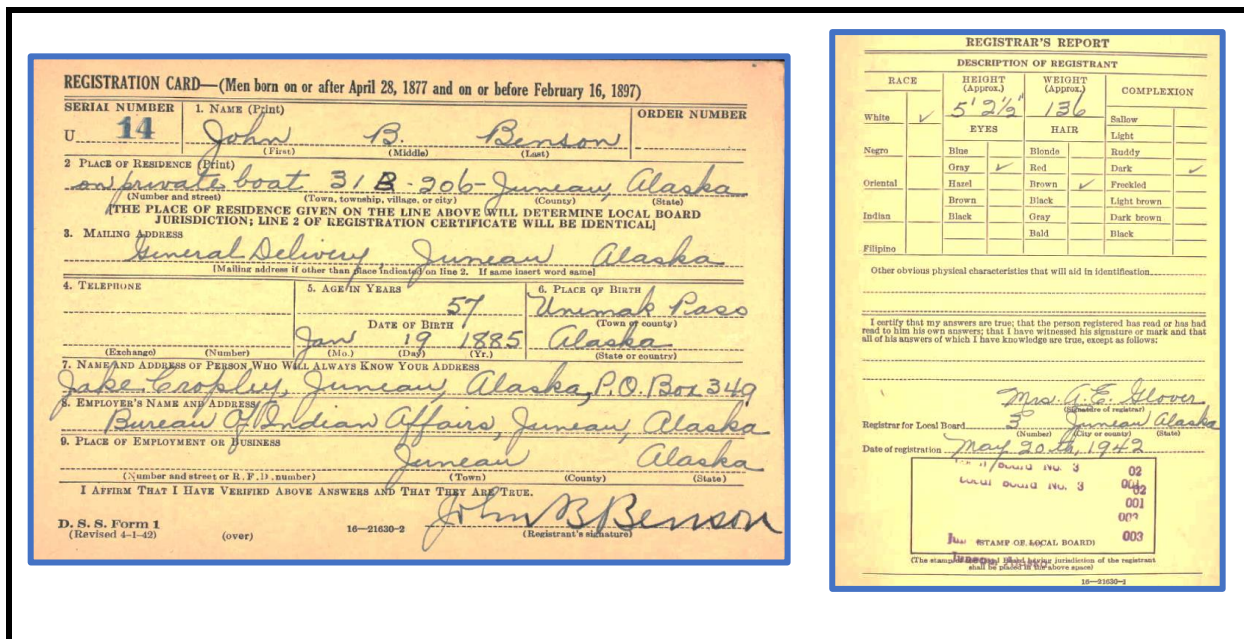 REGISTRATION CARD—(Men born on or after April 28, 1877 and on or before February 16, 1897)
SERIAL NUMBER
1. NAME (Print)
ORDER NUMBER
U 14
John B. Benson
(First) (Middle) (Last)
2 PLACE OF RESIDENCE (Print)
on private boat 31 B-206- Juneau, Alaska
(Number and street) (Town, township, village, or city) (County) (State)
[THE PLACE OF RESIDENCE GIVEN ON THE LINE ABOVE WILL DETERMINE LOCAL BOARD
JURISDICTION; LINE 2 OF REGISTRATION CERTIFICATE WILL BE IDENTICAL]
3. MAILING ADDRESS
General Delivery, Juneau Alaska
[Mailing address if other than place indicated on line 2. If same insert word same]
4. TELEPHONE
5. AGE IN YEARS
6. PLACE OF BIRTH
57
Unimak Pass
DATE OF BIRTH
(Town or county)
Jan 19 1885
Alaska
(Exchange) (Number)
(Mo.) (Day) (Yr.)
(State or country)
7. NAME AND ADDRESS OF PERSON WHO WILL ALWAYS KNOW YOUR ADDRESS
Jake Cropley, Juneau, Alaska, P.O. Box 349
8. EMPLOYER'S NAME AND ADDRESS
Bureau Of Indian Affairs, Juneau, Alaska
9. PLACE OF EMPLOYMENT OR BUSINESS
Juneau Alaska
(Number and street or R. F. D. number) (Town) (County) (State)
I AFFIRM THAT I HAVE VERIFIED ABOVE ANSWERS AND THAT THEY ARE TRUE.
John B Benson
D. S. S. Form 1
(Revised 4-1-42) (over)
16—21630-2
(Registrant's signature)
REGISTRAR'S REPORT
DESCRIPTION OF REGISTRANT
RACE
HEIGHT (Approx.)
WEIGHT (Approx.)
COMPLEXION
5' 2½" 136
White ✓
Sallow
EYES HAIR
Light
Negro Blue Blonde Ruddy
Gray ✓ Red Dark ✓
Oriental Hazel Brown ✓ Freckled
Brown Black Light brown
Indian Black Gray Dark brown
Bald Black
Filipino
Other obvious physical characteristics that will aid in identification
I certify that my answers are true; that the person registered has read or has had
read to him his own answers; that I have witnessed his signature or mark and that
all of his answers of which I have knowledge are true, except as follows:
Mrs. A. E. Glover
(Signature of registrar)
Registrar for Local Board 3 Juneau Alaska
(Number) (City or county) (State)
Date of registration May 20th, 1942
Board No. 3 02
Local Board No. 3 001
02
001
003
(STAMP OF LOCAL BOARD) 003
(The stamp of the Local Board having jurisdiction of the registrant
shall be placed in the above space)
16—21630-2